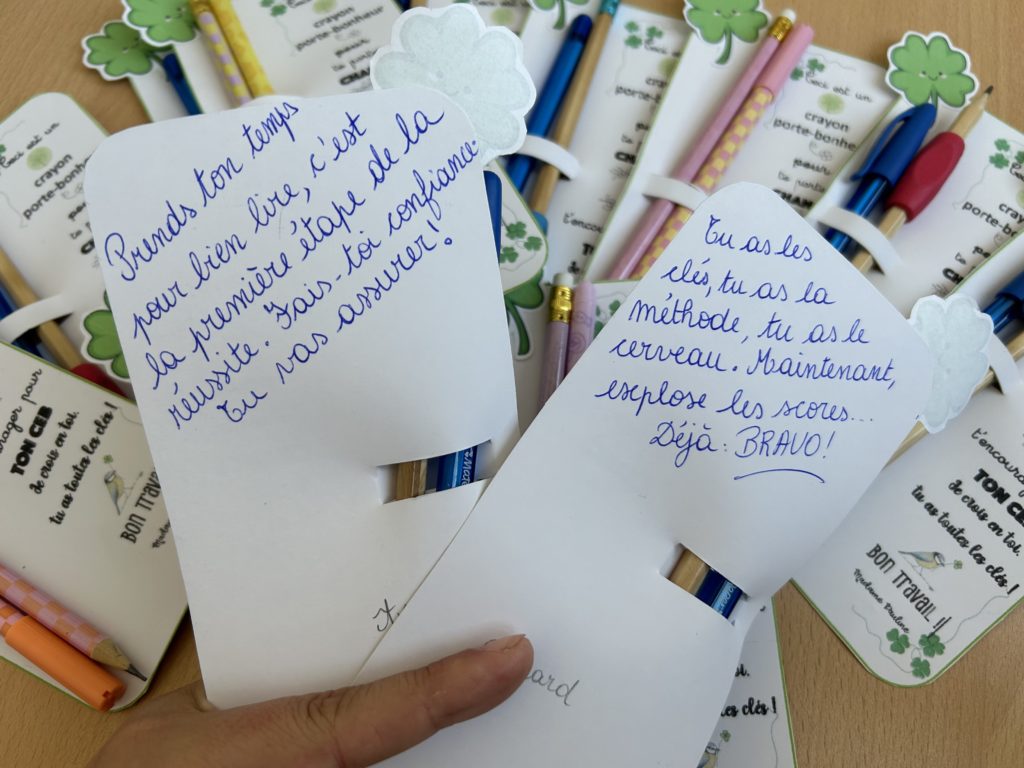 Prends ton temps
pour bien lire, c'est
la première étape de la
réussite. Fais-toi confiance.
Tu vas assurer!
Tu as les
clés, tu as la
méthode, tu as le
cerveau. Maintenant,
explose les scores...
Déjà : BRAVO!
Ceci est un
crayon
porte-bonheur
pour
Ceci est un
crayon
porte-bonhe
pour
Ceci est un
crayon
porte-bonhe
pour
Ceci est un
crayon
porte-bonhe
pour
Ceci est un
crayon
porte-bonh
pour
ourager pour
TON CEB
de crois en toi,
tu as toutes les clés !
BON TRAVAIL
Madame Pauline
t'encourag
TON CEB
de crois en toi,
tu as toutes les clés !
BON TRAVAIL !!
Madame Pauline
es clés !